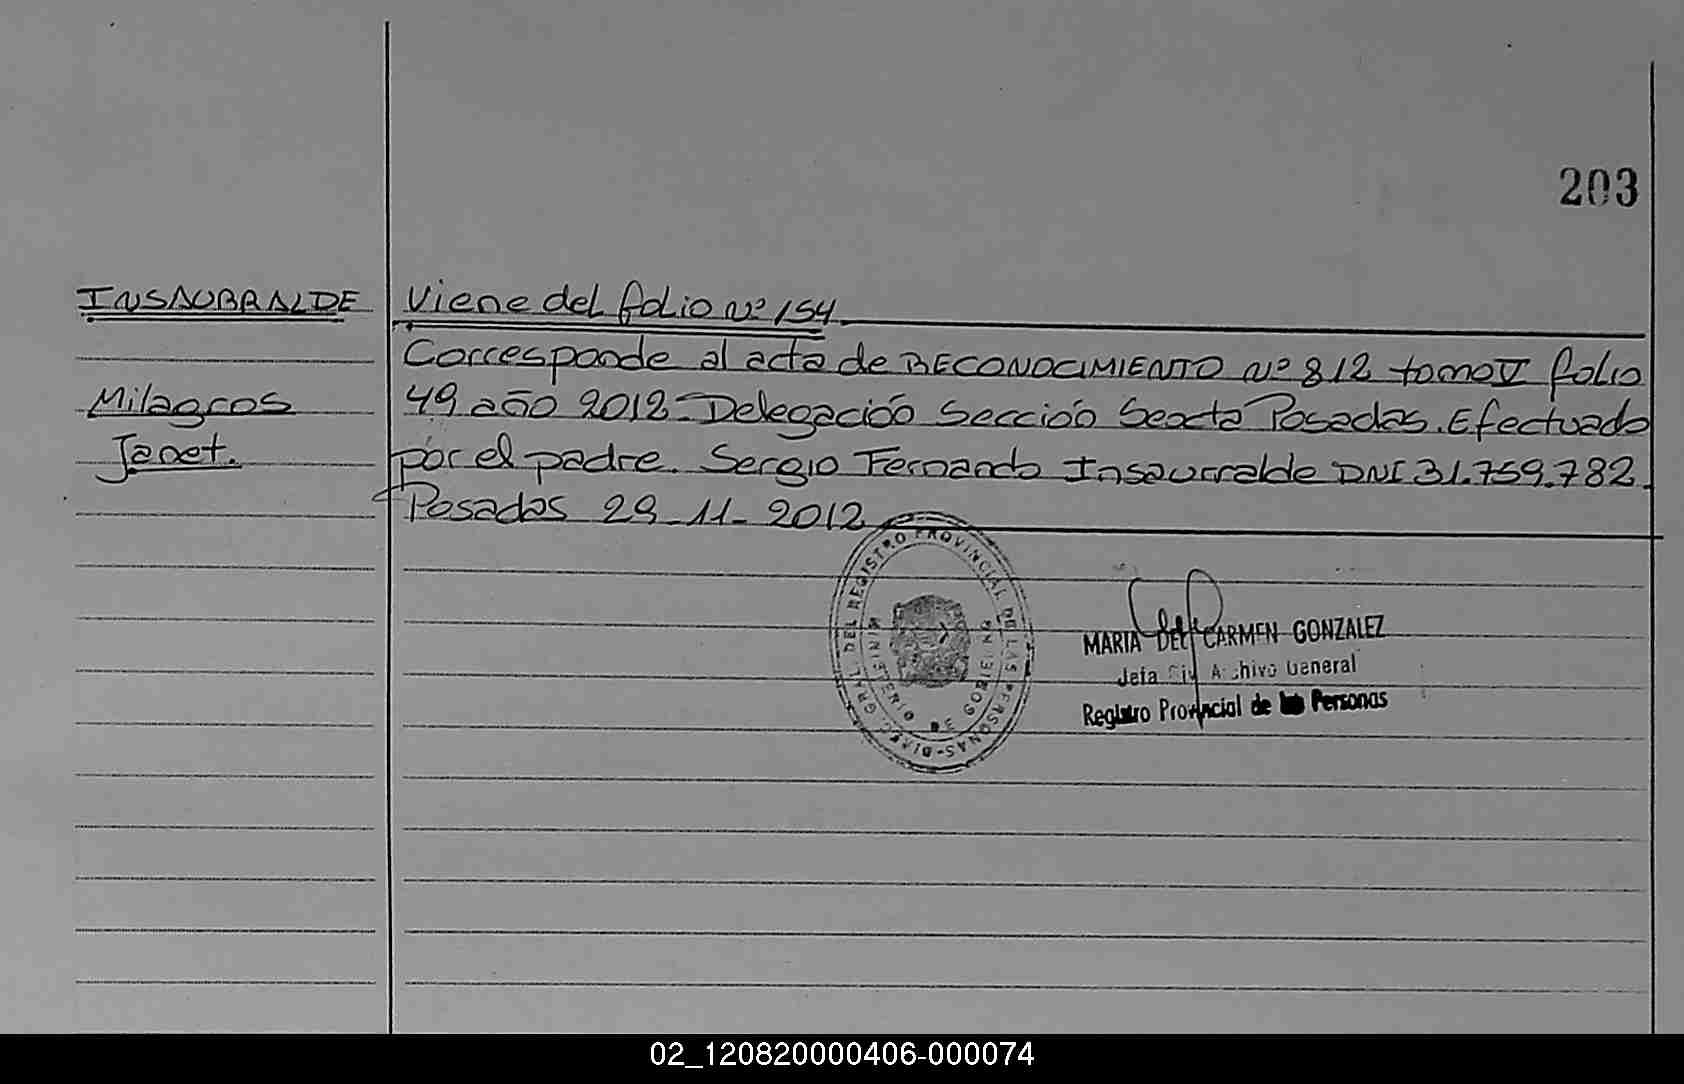 203
INSAURRALDE
Milagros
Janet.
Viene del folio Nº 154.
Corresponde al acta de RECONOCIMIENTO Nº 812 tomo V folio
49 año 2012 - Delegación Sección Sexta Posadas. Efectuado
por el padre. Sergio Fernando Insaurralde DNI 31.759.782.
Posadas 29-11-2012
DIREC. GRAL. DEL REGISTRO PROVINCIAL DE LAS PERSONAS
MINISTERIO DE GOBIERNO
MARIA DEL CARMEN GONZALEZ
Jefa Archivo General
Registro Provincial de las Personas
02_120820000406-000074